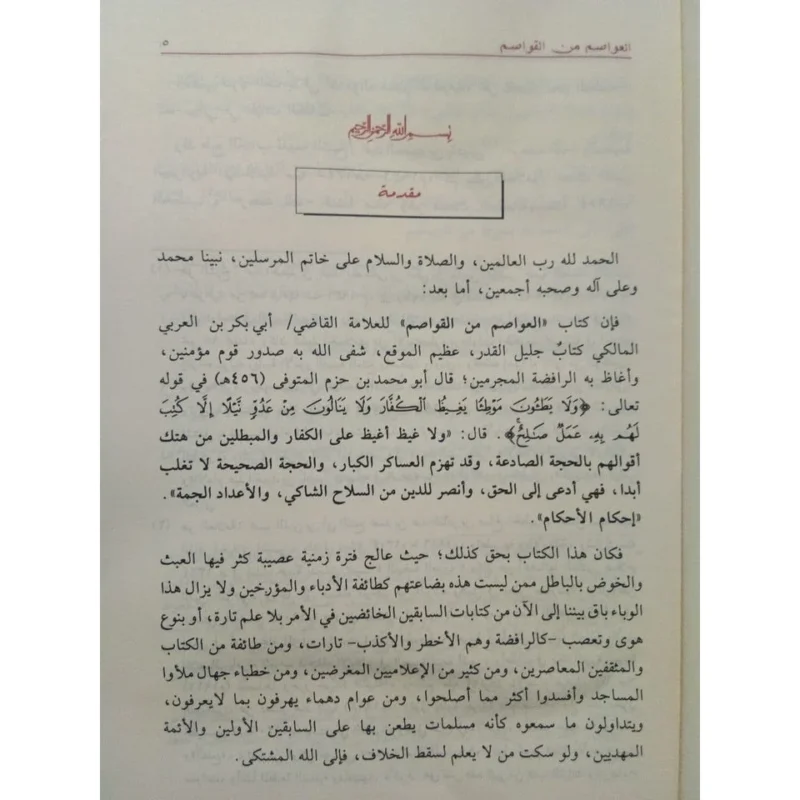 العواصم من القواصم ٥
بسم الله الرحمن الرحيم
مقدمة
الحمد لله رب العالمين، والصلاة والسلام على خاتم المرسلين، نبينا محمد
وعلى آله وصحبه أجمعين، أما بعد:
فإن كتاب «العواصم من القواصم» للعلامة القاضي/ أبي بكر بن العربي
المالكي كتابٌ جليل القدر، عظيم الموقع، شفى الله به صدور قوم مؤمنين،
وأغاظ به الرافضة المجرمين؛ قال أبو محمد بن حزم المتوفى (٤٥٦هـ) في قوله
تعالى: ﴿وَلَا يَطَـُٔونَ مَوْطِئًا يَغِيظُ ٱلْكُفَّارَ وَلَا يَنَالُونَ مِنْ عَدُوٍّ نَّيْلًا إِلَّا كُتِبَ
لَهُم بِهِۦ عَمَلٌ صَـٰلِحٌ﴾. قال: «ولا غيظ أغيظ على الكفار والمبطلين من هتك
أقوالهم بالحجة الصادعة، وقد تهزم العساكر الكبار، والحجة الصحيحة لا تغلب
أبدا، فهي أدعى إلى الحق، وأنصر للدين من السلاح الشاكي، والأعداد الجمة».
«إحكام الأحكام».
فكان هذا الكتاب بحق كذلك؛ حيث عالج فترة زمنية عصيبة كثر فيها العبث
والخوض بالباطل ممن ليست هذه بضاعتهم كطائفة الأدباء والمؤرخين ولا يزال هذا
الوباء باق بيننا إلى الآن من كتابات السابقين الخائضين في الأمر بلا علم تارة، أو بنوع
هوى وتعصب –كالرافضة وهم الأخطر والأكذب– تارات، ومن طائفة من الكتاب
والمثقفين المعاصرين، ومن كثير من الإعلاميين المغرضين، ومن خطباء جهال ملأوا
المساجد وأفسدوا أكثر مما أصلحوا، ومن عوام دهماء يهرفون بما لايعرفون،
ويتداولون ما سمعوه كأنه مسلمات يطعن بها على السابقين الأولين والأئمة
المهديين، ولو سكت من لا يعلم لسقط الخلاف، فإلى الله المشتكى.